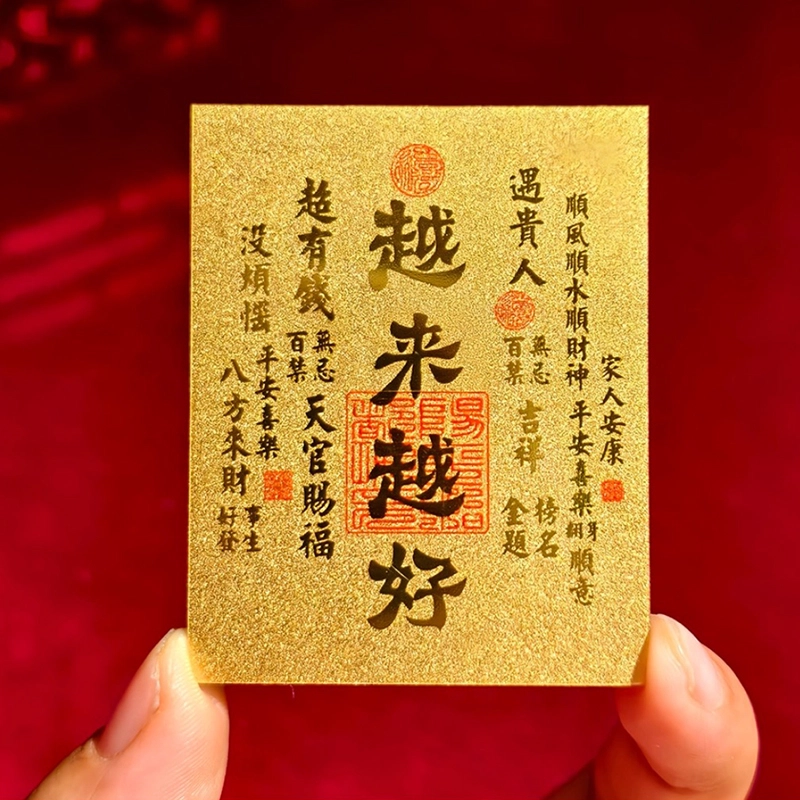 家人安康
順風順水順財神
平安喜樂
順意
遇貴人
無忌
百禁
吉祥
榜名
金題
越来越好
超有錢
無忌
百禁
天官賜福
没煩惱
平安喜樂
八方來財
事生
好發